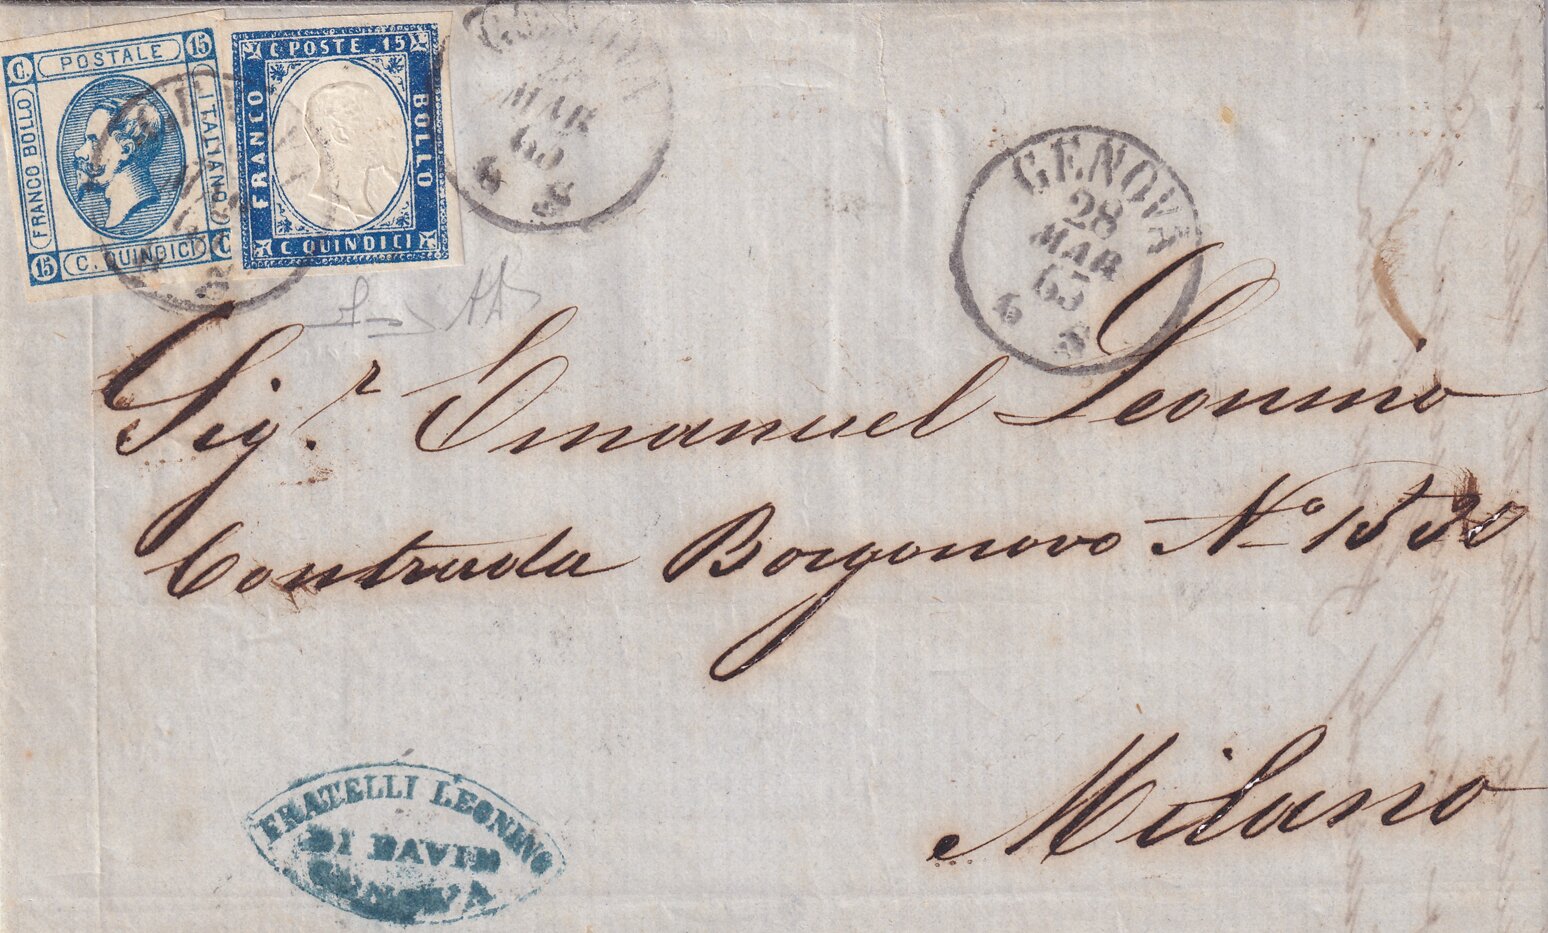 C. POSTALE 15
FRANCO BOLLO
ITALIANO
15 C. QUINDICI C
C POSTE. 15
FRANCO
BOLLO
C QUINDICI
MAR
63
GENOVA
28
MAR
63
4 S
Sig.r Emanuel Leonino
Contrada Borgonovo No 1530
Milano
FRATELLI LEONINO
DI DAVID
GENOVA